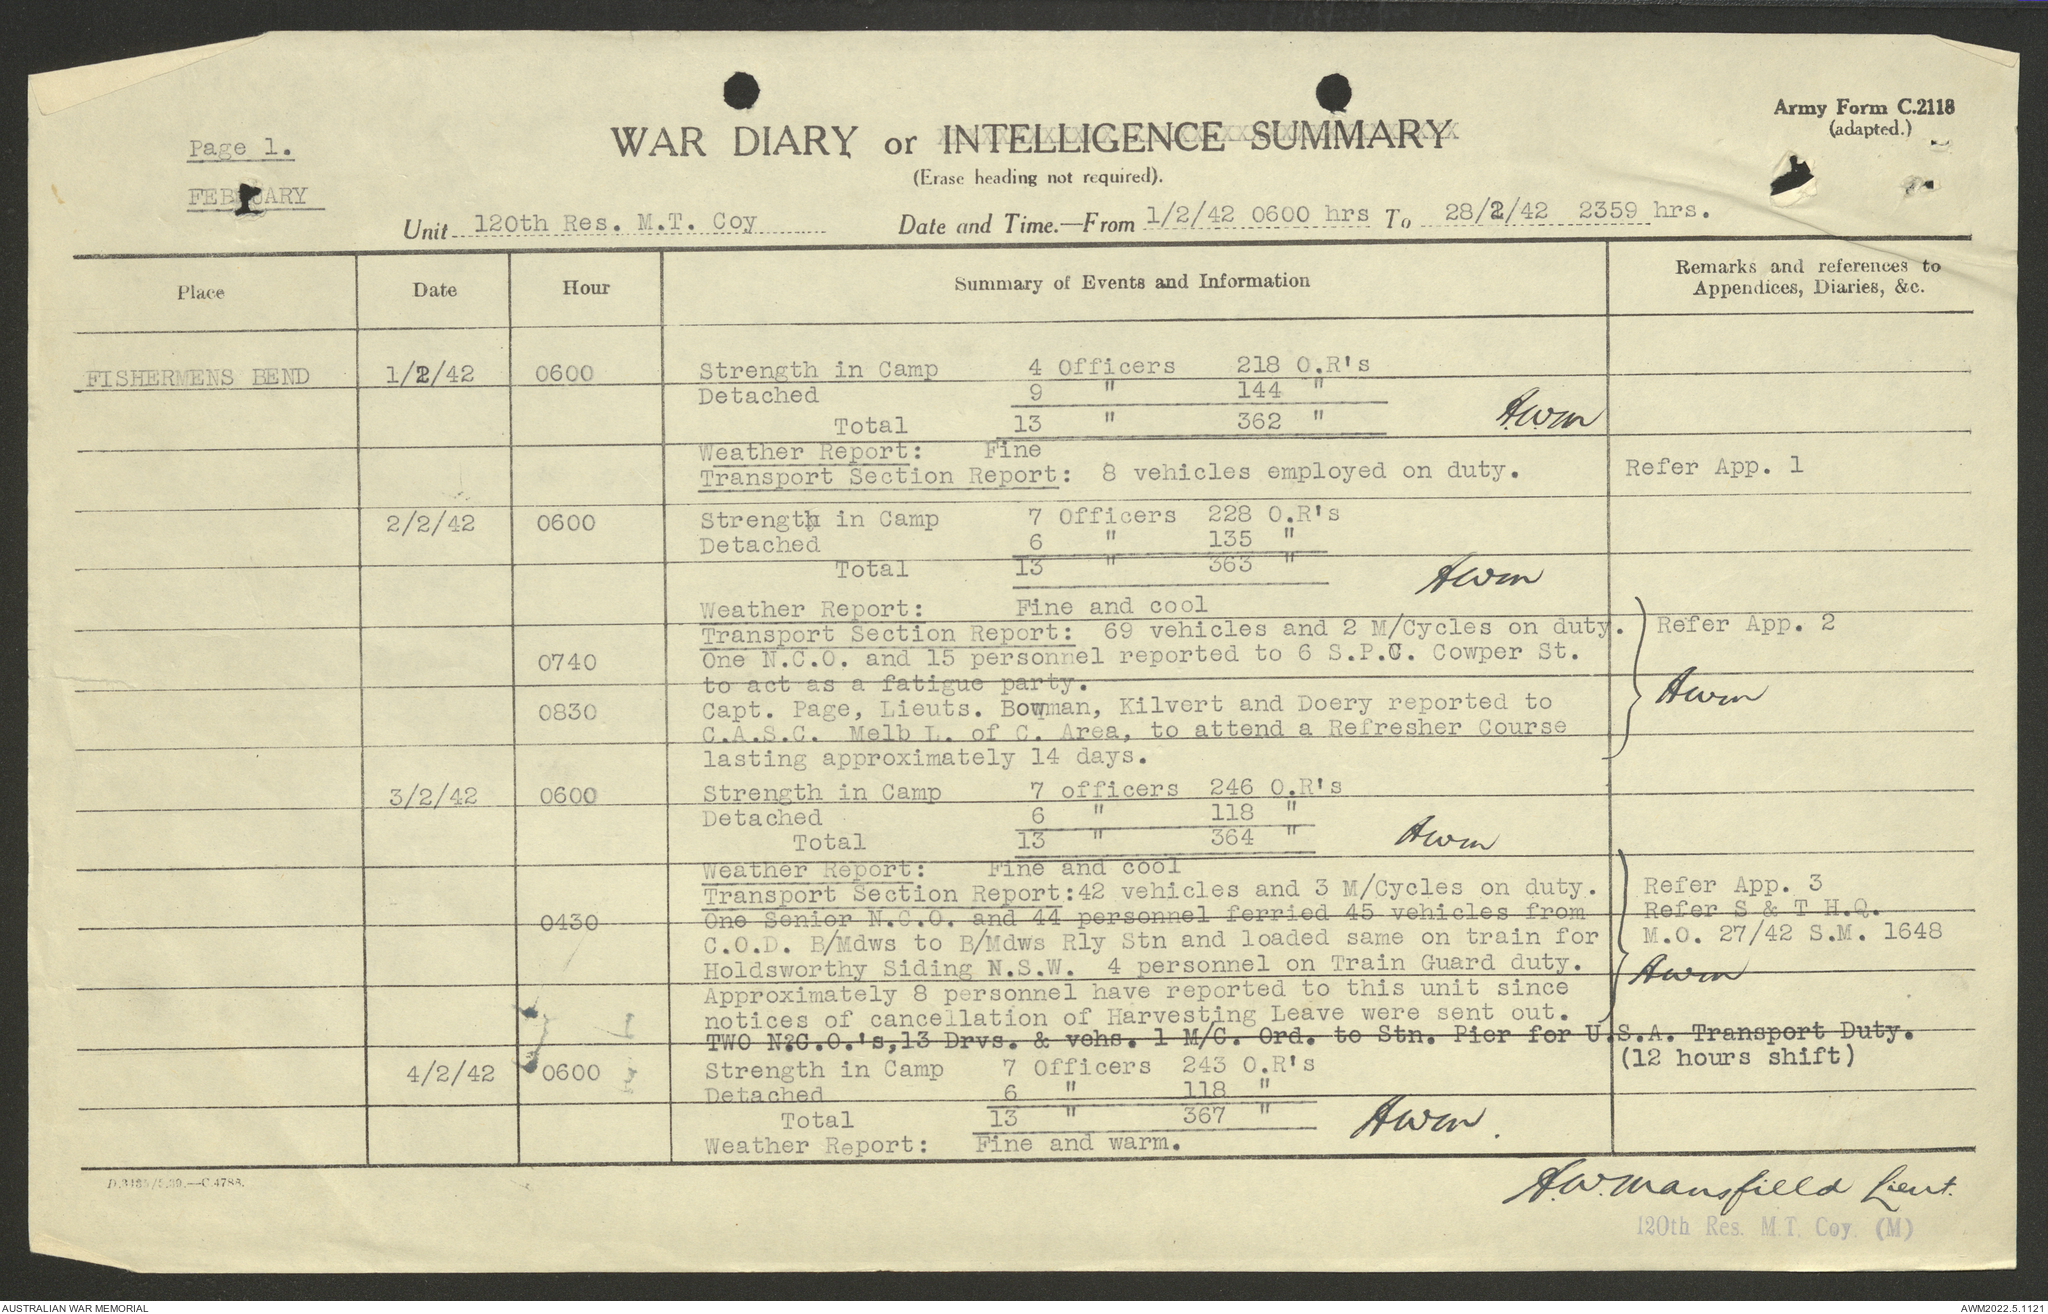 Army Form C.2118
(adapted.)
Page 1.
FEBRUARY
WAR DIARY or INTELLIGENCE SUMMARY
(Erase heading not required).
Unit 120th Res. M.T. Coy Date and Time.—From 1/2/42 0600 hrs To 28/2/42 2359 hrs.
Place Date Hour Summary of Events and Information Remarks and references to
Appendices, Diaries, &c.
FISHERMENS BEND 1/2/42 0600 Strength in Camp 4 Officers 218 O.R's
Detached 9 " 144 "
Total 13 " 362 " AWM
Weather Report: Fine
Transport Section Report: 8 vehicles employed on duty. Refer App. 1
2/2/42 0600 Strength in Camp 7 Officers 228 O.R's
Detached 6 " 135 "
Total 13 " 363 " AWM
Weather Report: Fine and cool
Transport Section Report: 69 vehicles and 2 M/Cycles on duty. Refer App. 2
0740 One N.C.O. and 15 personnel reported to 6 S.P.C. Cowper St.
to act as a fatigue party. AWM
0830 Capt. Page, Lieuts. Bowman, Kilvert and Doery reported to
C.A.S.C. Melb L. of C. Area, to attend a Refresher Course
lasting approximately 14 days.
3/2/42 0600 Strength in Camp 7 officers 246 O.R's
Detached 6 " 118 "
Total 13 " 364 " AWM
Weather Report: Fine and cool
Transport Section Report:42 vehicles and 3 M/Cycles on duty. Refer App. 3
0430 One Senior N.C.O. and 44 personnel ferried 45 vehicles from Refer S & T H.Q.
C.O.D. B/Mdws to B/Mdws Rly Stn and loaded same on train for M.O. 27/42 S.M. 1648
Holdsworthy Siding N.S.W. 4 personnel on Train Guard duty. AWM
Approximately 8 personnel have reported to this unit since
notices of cancellation of Harvesting Leave were sent out.
TWO N.C.O.'s,13 Drvs. & vehs. 1 M/C. Ord. to Stn. Pier for U.S.A. Transport Duty.
(12 hours shift)
4/2/42 0600 Strength in Camp 7 Officers 243 O.R's
Detached 6 " 118 "
Total 13 " 367 " AWM.
Weather Report: Fine and warm.
A.W.Mansfield Lieut.
120th Res. M.T. Coy. (M)
AUSTRALIAN WAR MEMORIAL
AWM2022.5.1121